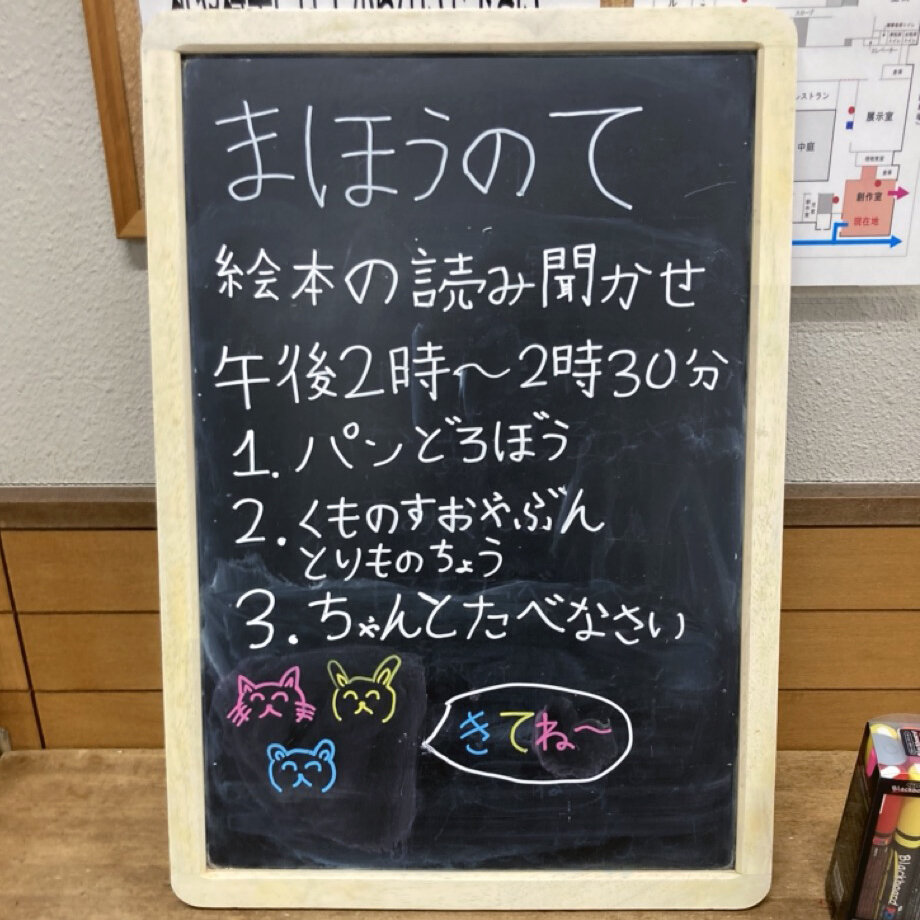 まほうのて
絵本の読み聞かせ
午後2時～2時30分
1.パンどろぼう
2.くものすおやぶん
とりものちょう
3.ちゃんとたべなさい
きてね～
ストラン
中庭
展示室
創作室
現在地
倉庫
エレベーター
Blackboard